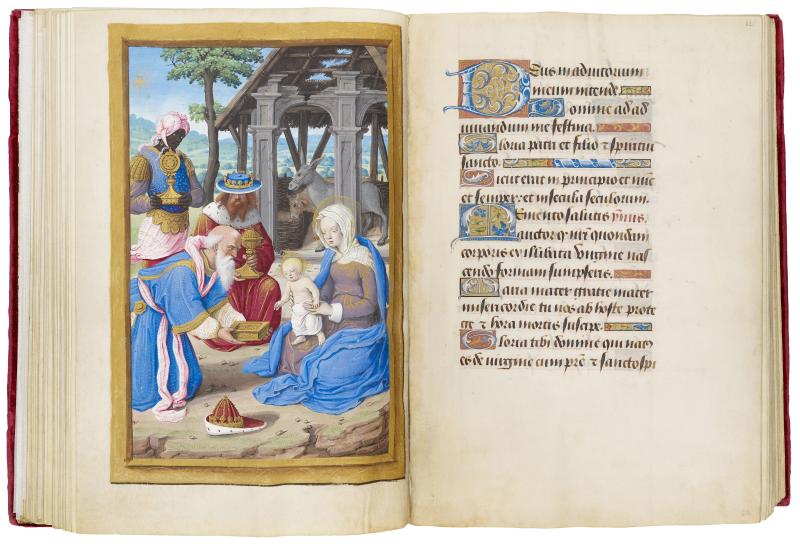 Deus in adiutorium
meum intende.
Domine ad ad
iuuandum me festina.
Gloria patri et filio ⁊ spiritui
sancto.
Sicut erat in principio et nūc
et semper et in secula seculorum.
Memento salutis ymnus.
auctor q nr̄i quondam
corporis ex illibata virgine nas
cendo formam sumpseris.
Maria mater gratie mater
misericordie tu nos ab hoste prote
ge ⁊ hora mortis suscipe.
Gloria tibi domine qui natus
es de virgine cum prē ⁊ sancto spi